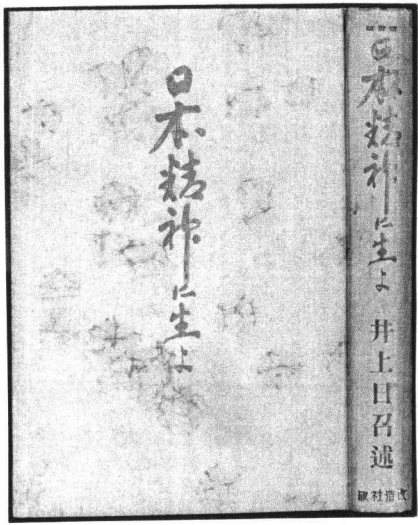 日本精神に生よ
日本精神に生よ
井上日召述
改造社版